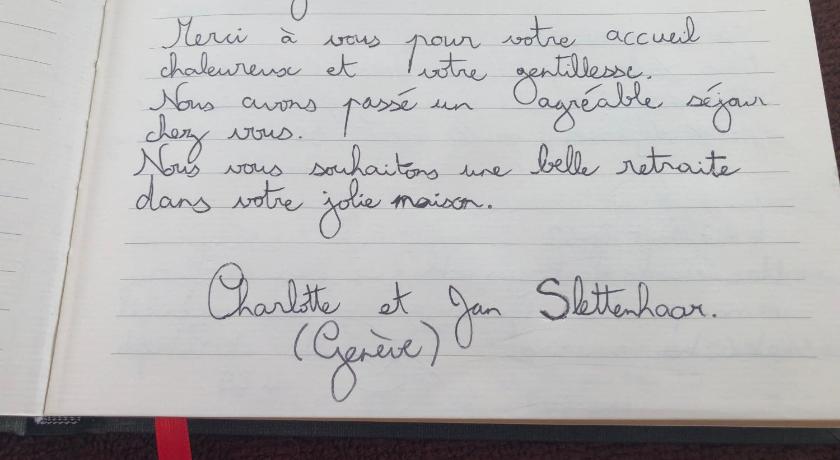 Merci à vous pour votre accueil
chaleureux et votre gentillesse.
Nous avons passé un agréable séjour
chez vous.
Nous vous souhaitons une belle retraite
dans votre jolie maison.
Charlotte et Jan Slettenhaar.
(Genève)